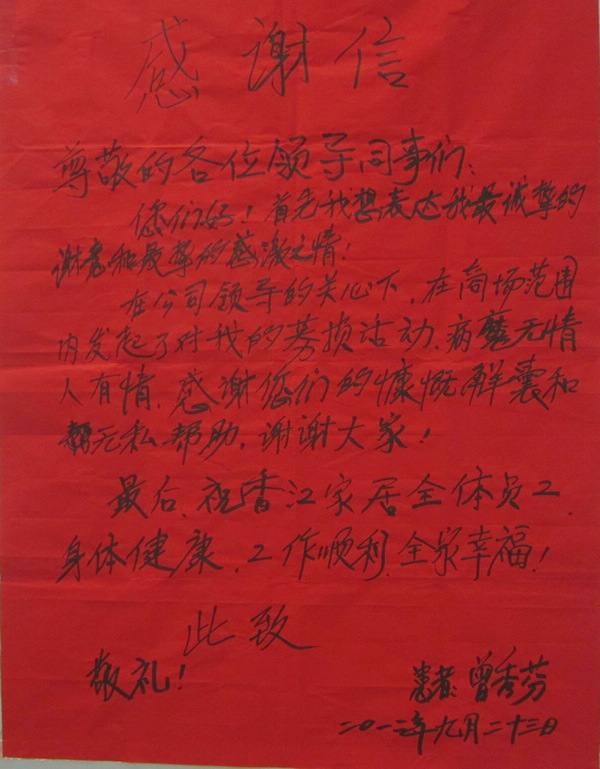 感谢信
尊敬的各位领导同事们:
您们好!首先我想表达我最诚挚的
谢意和最挚的感激之情!
在公司领导的关心下,在商场范围
内发起了对我的募捐活动,病魔无情
人有情,感谢您们的慷慨解囊和
无私帮助,谢谢大家!
最后,祝香江家居全体员工,
身体健康,工作顺利,全家幸福!
此致
敬礼!
患者:曾秀芬
二〇一三年九月二十三日